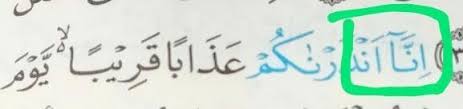 اِنَّآ اَنْذَرْنٰكُمْ عَذَابًا قَرِيْبًا ەۙ يَّوْمَ